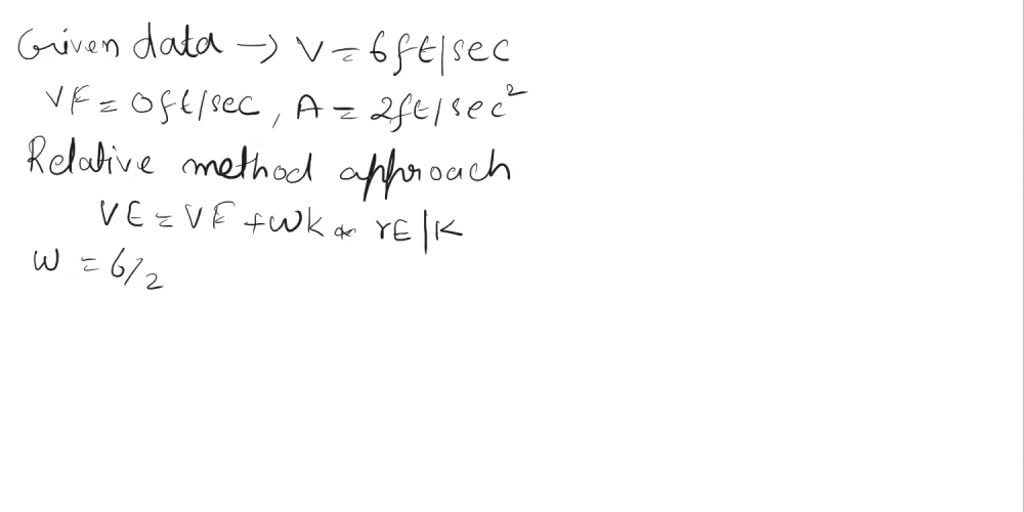 Given data → V = 6ft/sec
VF = 0ft/sec, A = 2ft/sec²
Relative method approach
VE = VF + Wk × rE/K
W = 6/2